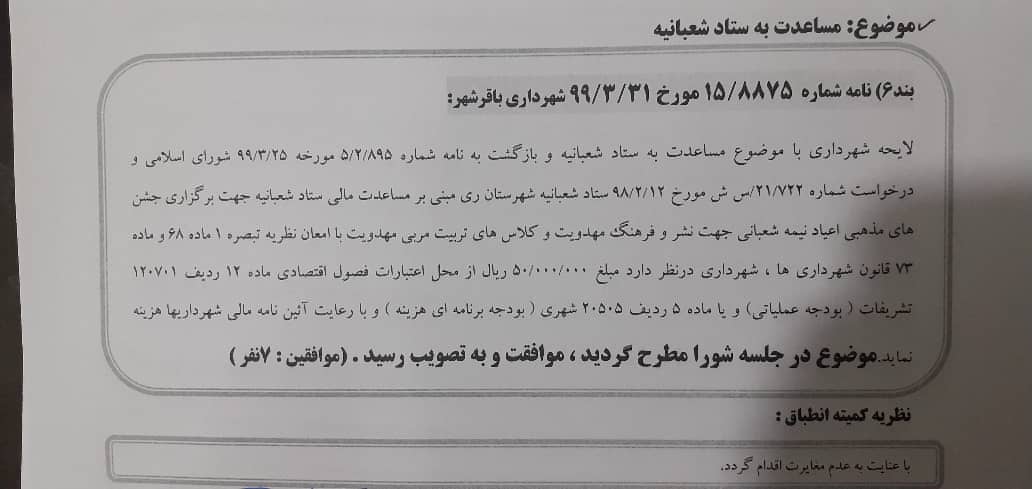 ✓موضوع: مساعدت به ستاد شعبانیه
بند۶) نامه شماره ۱۵/۸۸۷۵ مورخ ۹۹/۳/۳۱ شهرداری باقرشهر:
لایحه شهرداری با موضوع مساعدت به ستاد شعبانیه و بازگشت به نامه شماره ۵/۲/۸۹۵ مورخه ۹۹/۳/۲۵ شورای اسلامی و
درخواست شماره ۲۱/۷۲۲/س ش مورخ ۹۸/۲/۱۲ ستاد شعبانیه شهرستان ری مبنی بر مساعدت مالی ستاد شعبانیه جهت برگزاری جشن
های مذهبی اعیاد نیمه شعبانی جهت نشر و فرهنگ مهدویت و کلاس های تربیت مربی مهدویت با امعان نظریه تبصره ۱ ماده ۶۸ و ماده
۷۳ قانون شهرداری ها ، شهرداری درنظر دارد مبلغ ۵۰/۰۰۰/۰۰۰ ریال از محل اعتبارات فصول اقتصادی ماده ۱۲ ردیف ۱۲۰۷۰۱
تشریفات ( بودجه عملیاتی) و یا ماده ۵ ردیف ۲۰۵۰۵ شهری ( بودجه برنامه ای هزینه ) و با رعایت آئین نامه مالی شهرداریها هزینه
نماید.موضوع در جلسه شورا مطرح گردید ، موافقت و به تصویب رسید . (موافقین : ۷نفر )
نظریه کمیته انطباق :
با عنایت به عدم مغایرت اقدام گردد.